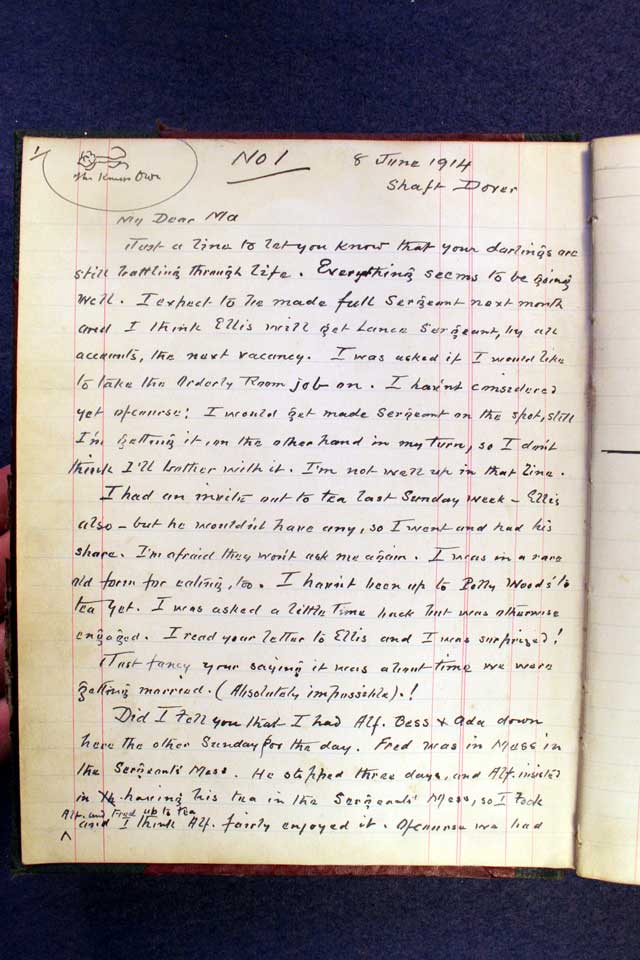 1/
The Kings Own
No 1
8 June 1914
Shaft Dover
My Dear Ma
Just a line to let you know that your darlings are
still battling through life. Everything seems to be going
well. I expect to be made full Sergeant next month
and I think Ellis will get Lance Sergeant, by all
accounts, the next vacancy. I was asked if I would like
to take the Orderly Room job on. I havn't considered
yet ofcourse; I would get made Sergeant on the spot, still
I'm getting it, on the other hand in my turn, so I don't
think I'll bother with it. I'm not well up in that line.
I had an invite out to tea last Sunday week - Ellis
also - but he wouldn't have any, so I went and had his
share. I'm afraid they won't ask me again. I was in a rare
old form for eating, too. I havn't been up to Polly Woods' to
tea yet. I was asked a little time back but was otherwise
engaged. I read your letter to Ellis and I was surprized!
Just fancy your saying it was about time we were
getting married. (Absolutely impossible).!
Did I tell you that I had Alf. Bess & Ada down
here the other Sunday for the day. Fred was in Mess in
the Sergeants' Mess. He stopped three days, and Alf. insisted
in having his tea in the Sergeants' Mess, so I took
Alf. and Fred up to tea
and I think Alf. fairly enjoyed it. Ofcourse we had